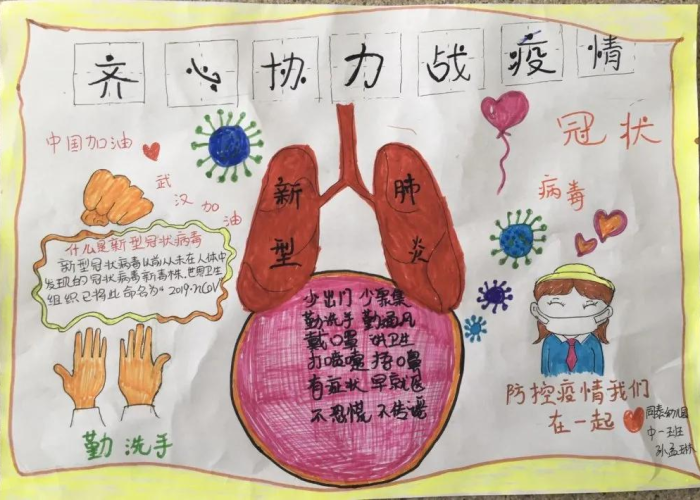 齐心协力战疫情
中国加油
武汉加油
冠状
病毒
新型
肺炎
什么是新型冠状病毒
新型冠状病毒以前从未在人体中
发现的冠状病毒新毒株,世界卫生
组织已将此命名为“2019-nCoV
少出门 少聚集
勤洗手 勤通风
戴口罩 讲卫生
打喷嚏 捂口罩
有症状 早就医
不恐慌 不传谣
勤洗手
防控疫情我们
在一起
幼儿园
中一班
孙孟琳